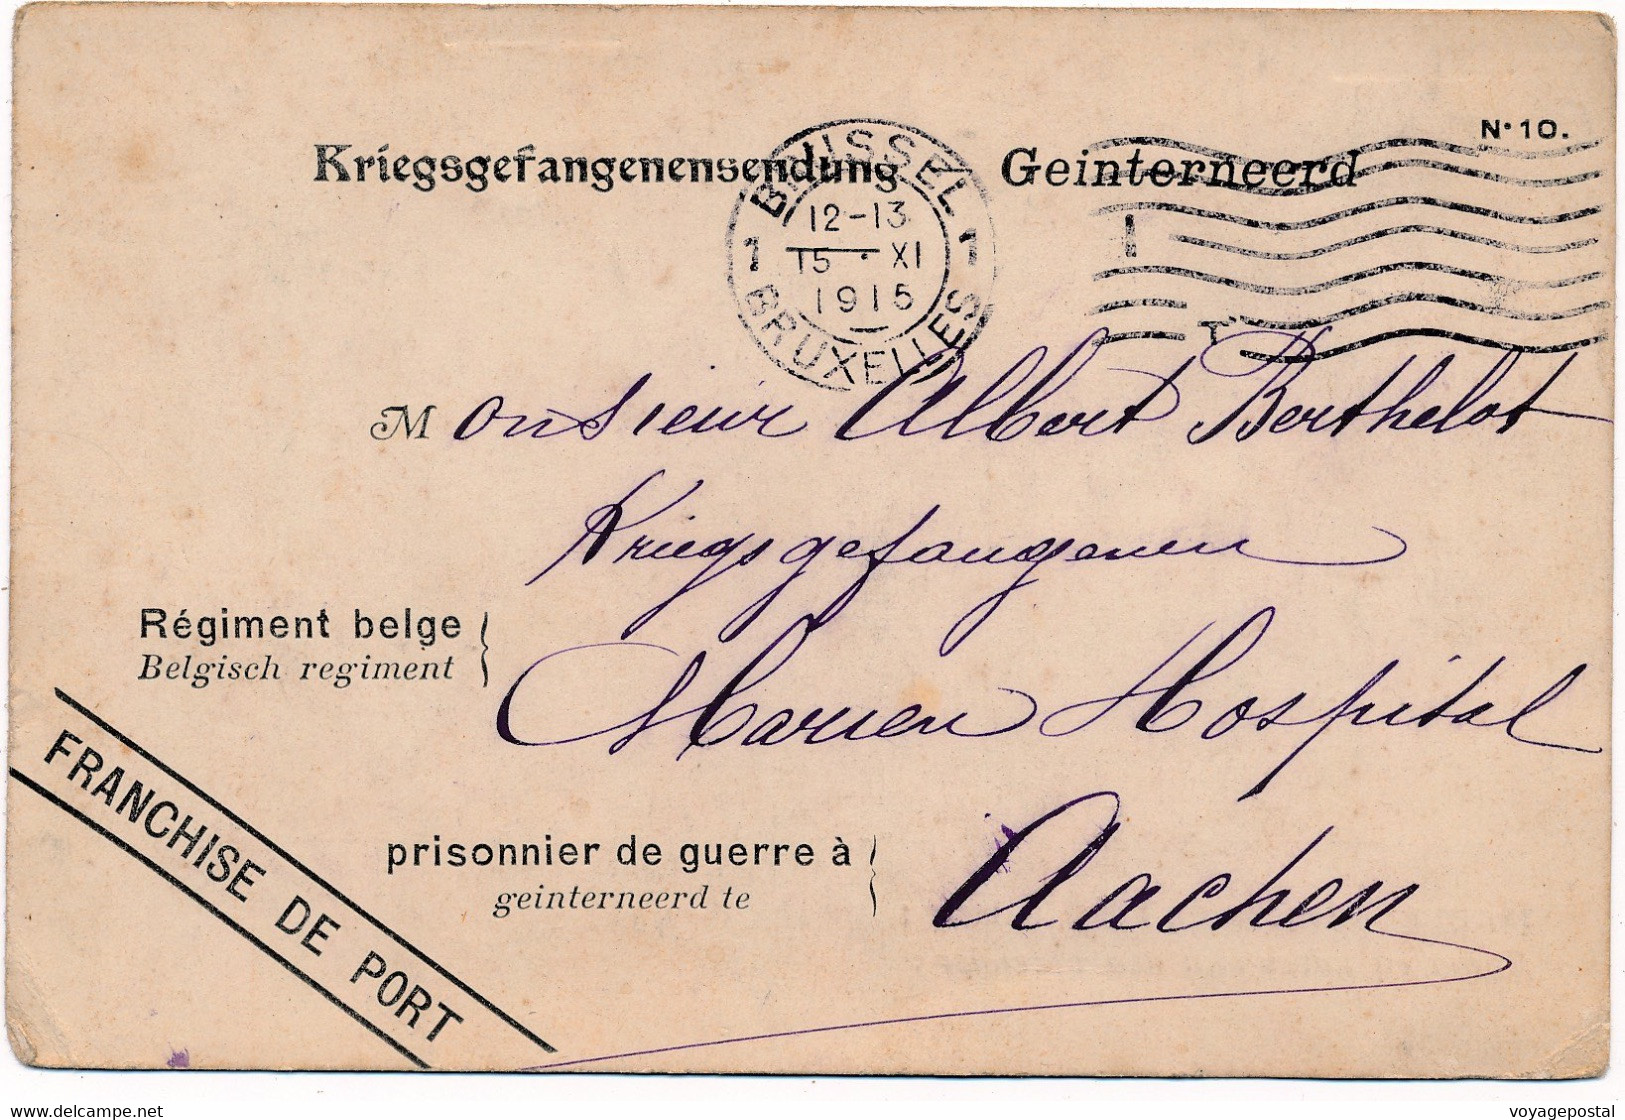 N° 10.
Kriegsgefangenensendung Geinterneerd
BRUSSEL
12-13
1 15 · XI 1
1915
BRUXELLES
Monsieur Albert Berthelot
Kriegsgefangenen
Régiment belge
Belgisch regiment
Marien Hospital
FRANCHISE DE PORT
prisonnier de guerre à
geinterneerd te
Aachen
www.delcampe.net
voyagepostal